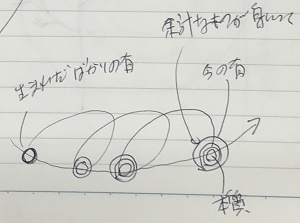 余計なものが身について
生まれたばかりの有
今の有
本質